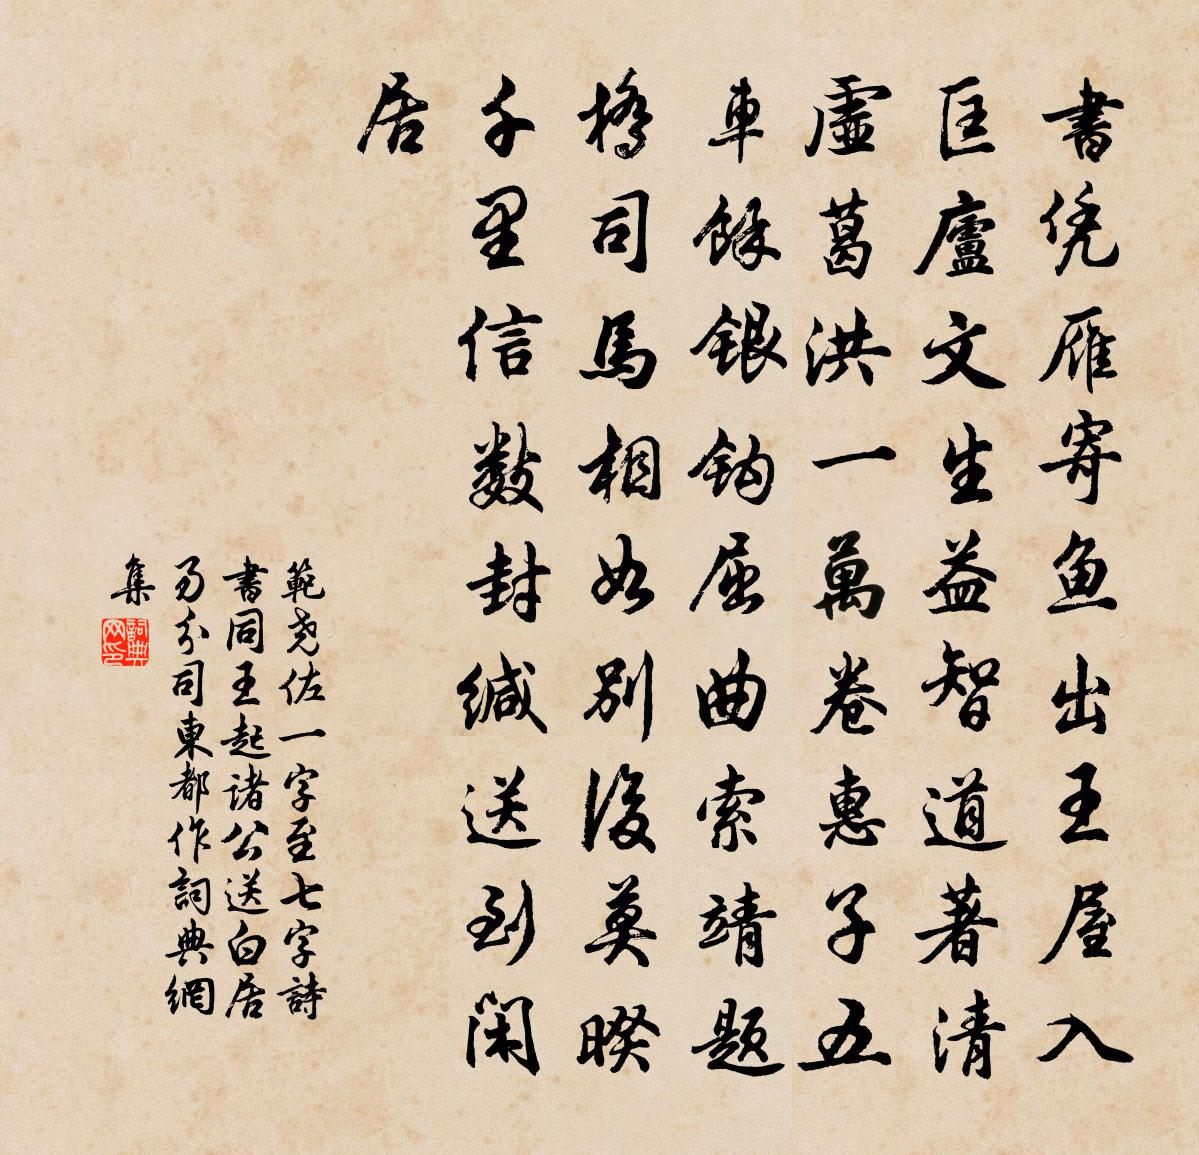 書凭雁寄魚出王屋入
匡廬文生益智道著清
虛葛洪一萬卷惠子五
車餘銀鈎屈曲索靖題
橋司馬相如別後莫暌
千里信數封緘送到閑
居
範堯佐一字至七字詩
書同王起諸公送白居
易分司東都作詞典網
集
詞典网印